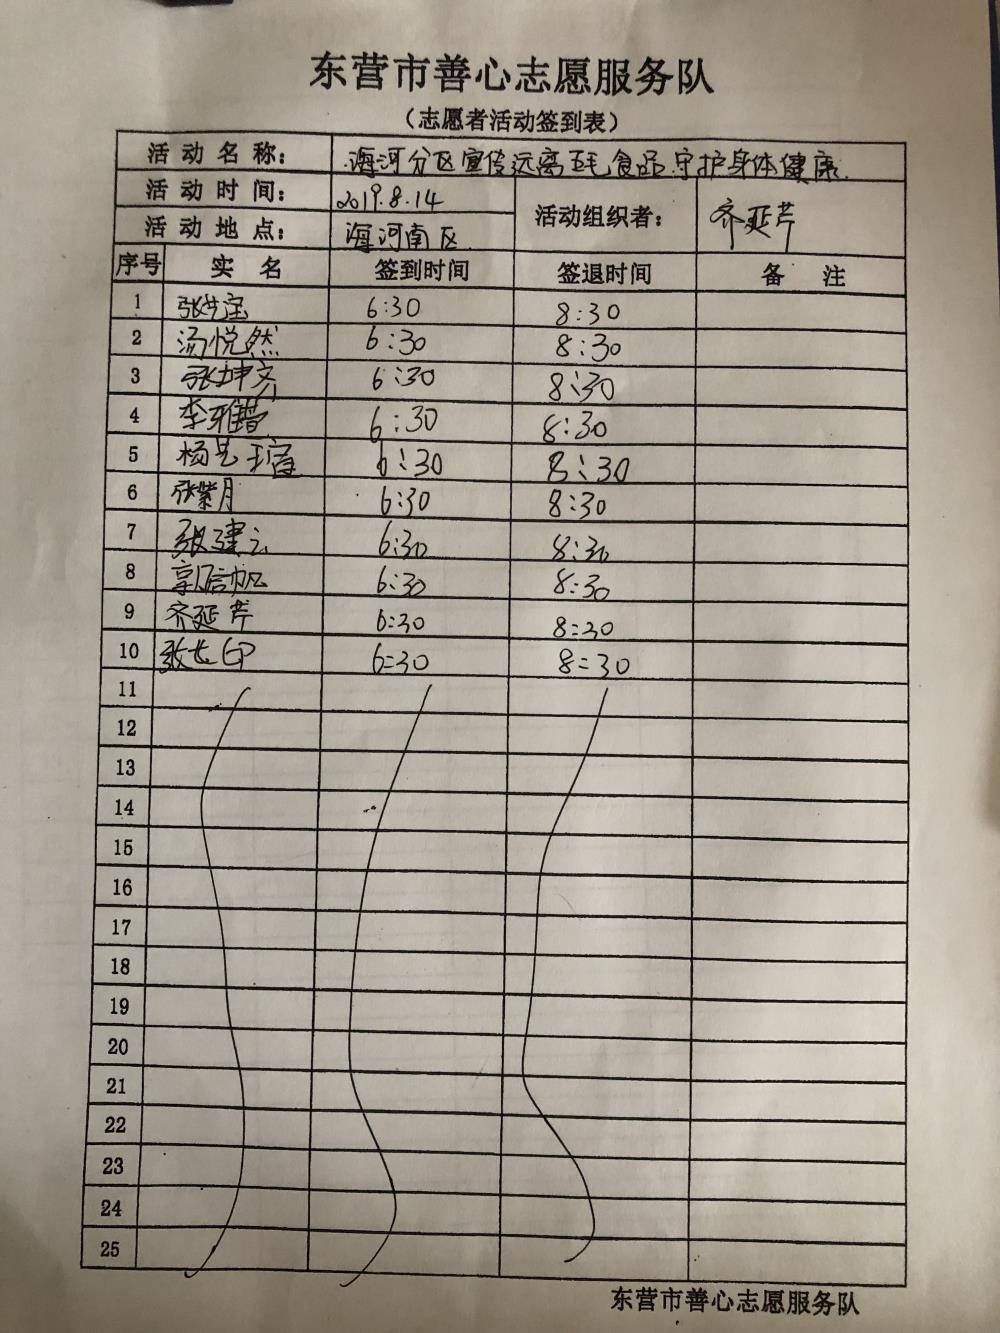 东营市善心志愿服务队
（志愿者活动签到表）
活动名称： 海河分区宣传远离五毛食品 守护身体健康
活动时间： 2019.8.14 活动组织者： 齐延芹
活动地点： 海河南区
序号 实名 签到时间 签退时间 备注
1 6:30 8:30
2 汤悦然 6:30 8:30
3 张坤 6:30 8:30
4 李雅 6:30 8:30
5 杨 6:30 8:30
6 张紫月 6:30 8:30
7 张建云 6:30 8:30
8 郭信帆 6:30 8:30
9 齐延芹 6:30 8:30
10 6:30 8:30
11
12
13
14
15
16
17
18
19
20
21
22
23
24
25
东营市善心志愿服务队